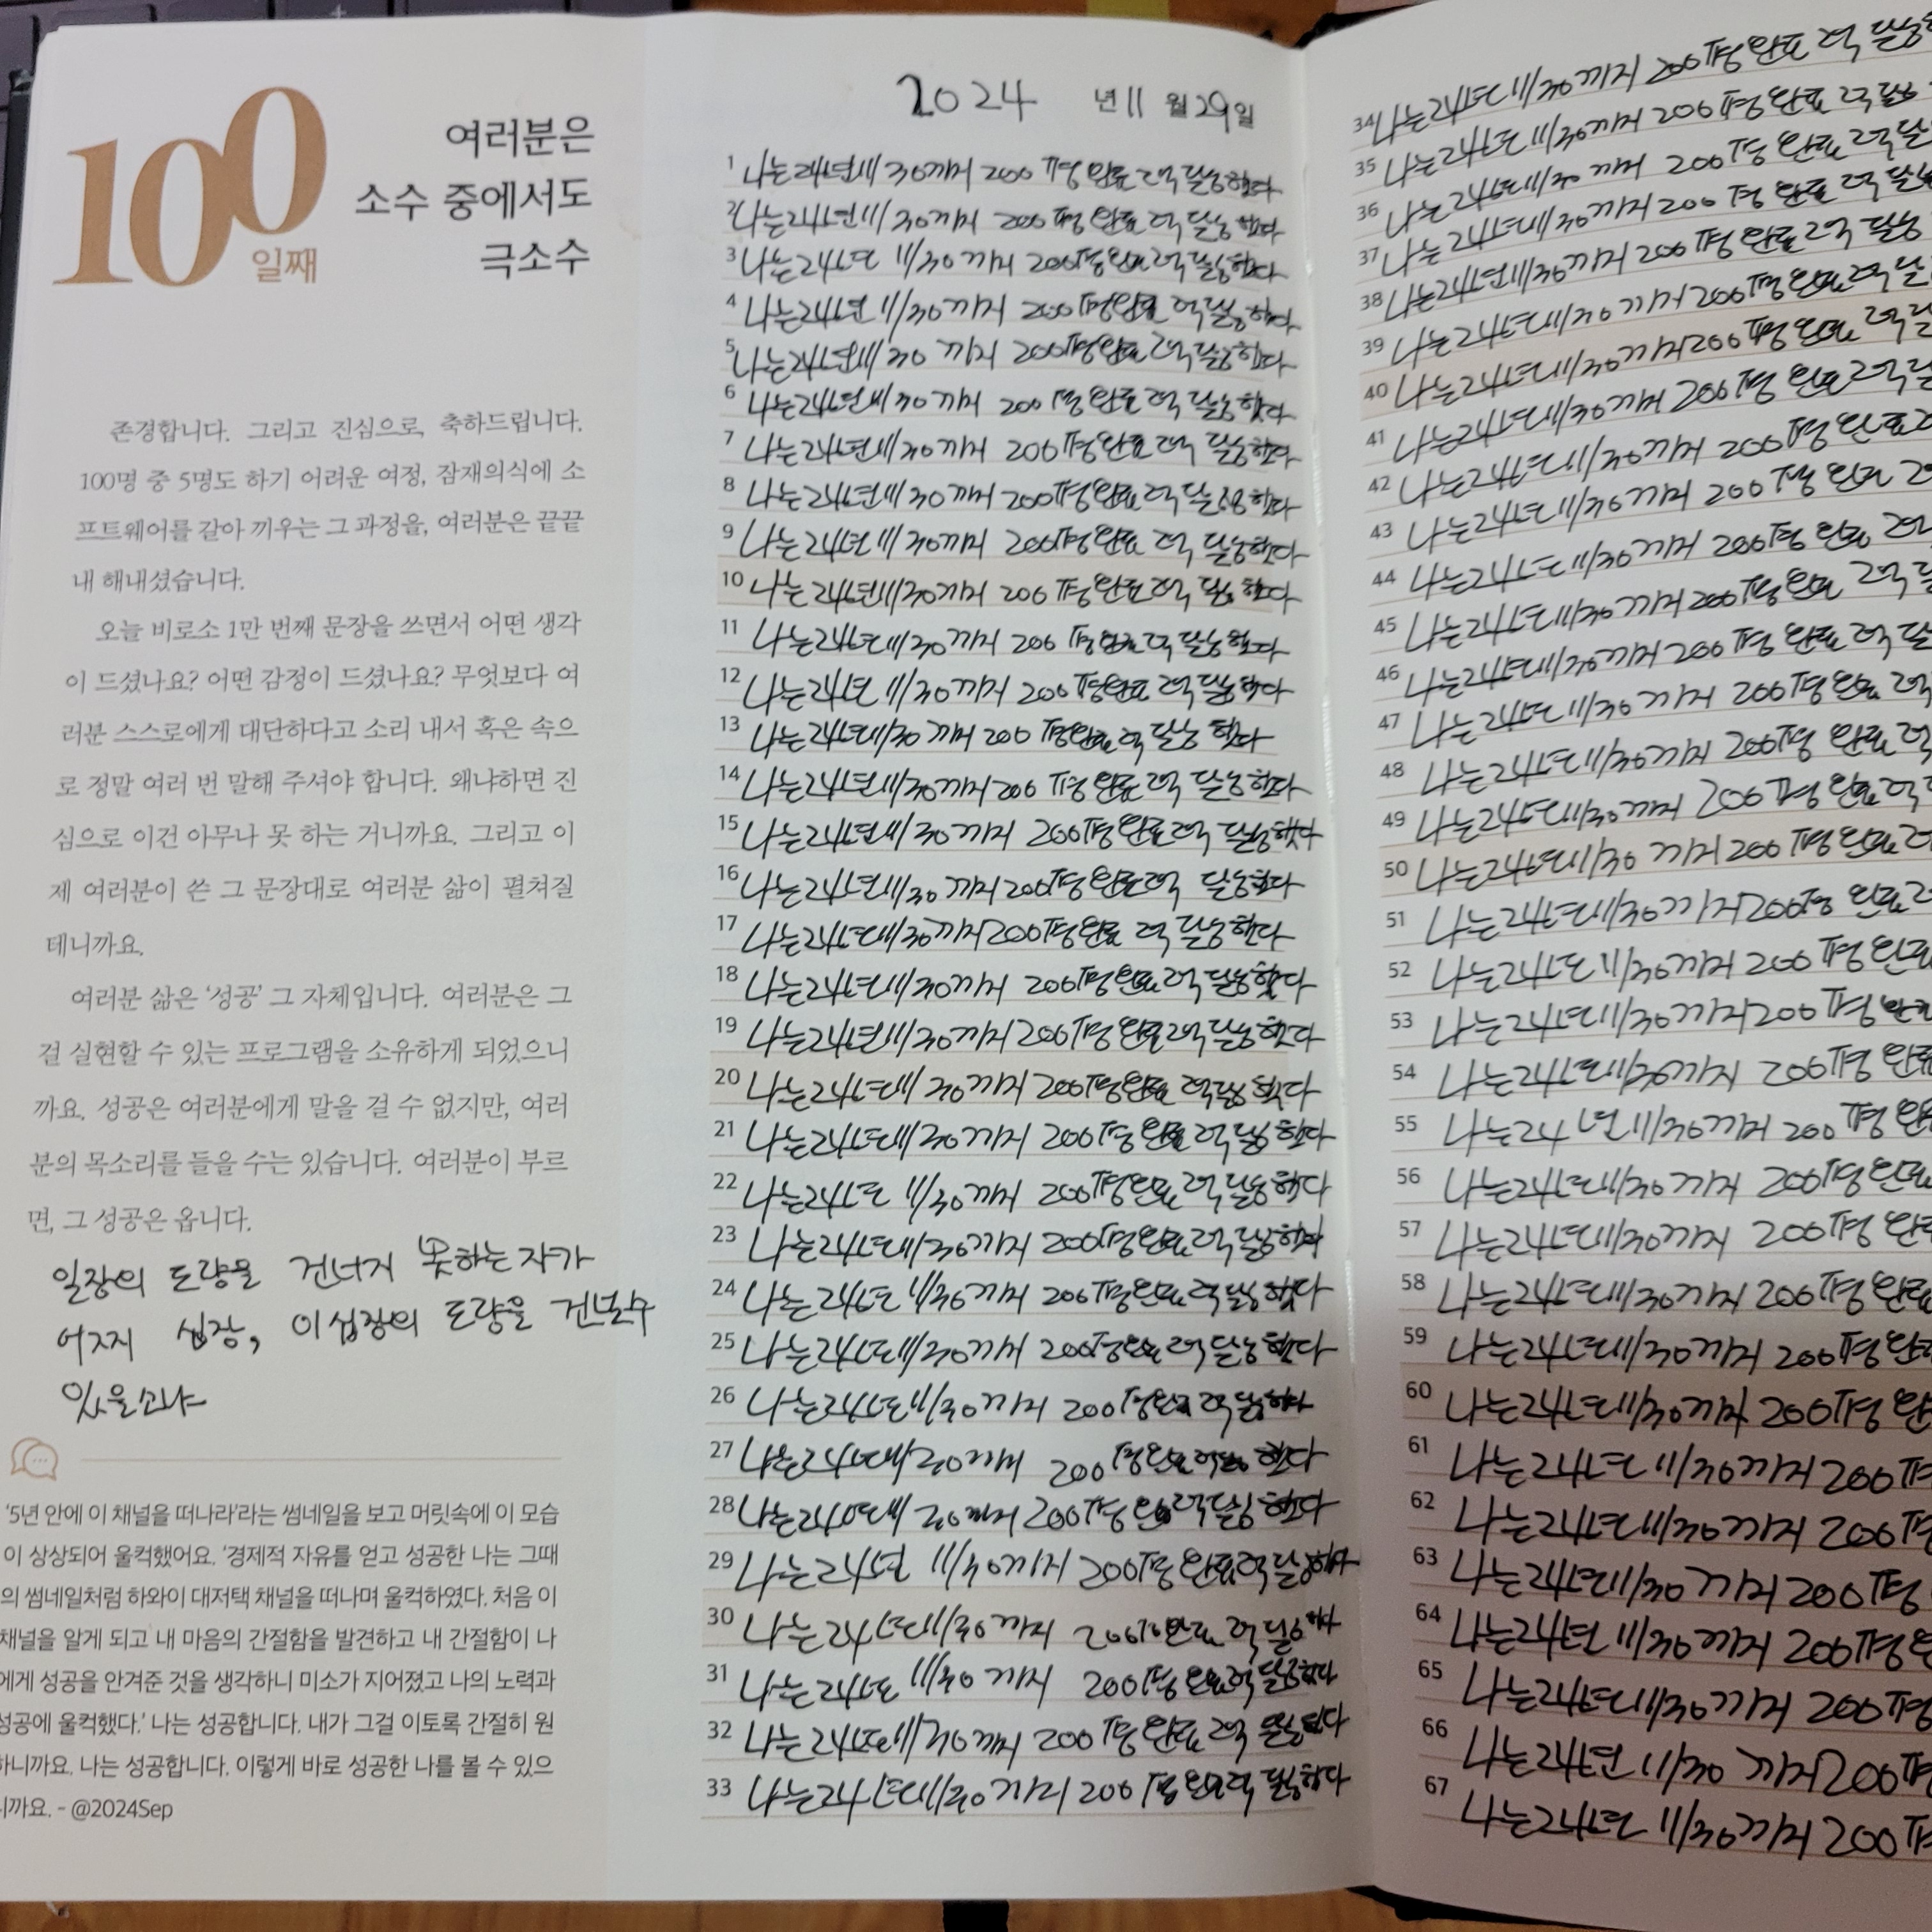 100
일째
여러분은
소수 중에서도
극소수
존경합니다. 그리고 진심으로, 축하드립니다.
100명 중 5명도 하기 어려운 여정, 잠재의식에 소
프트웨어를 갈아 끼우는 그 과정을, 여러분은 끝끝
내 해내셨습니다.
오늘 비로소 1만 번째 문장을 쓰면서 어떤 생각
이 드셨나요? 어떤 감정이 드셨나요? 무엇보다 여
러분 스스로에게 대단하다고 소리 내서 혹은 속으
로 정말 여러 번 말해 주셔야 합니다. 왜냐하면 진
심으로 이건 아무나 못 하는 거니까요. 그리고 이
제 여러분이 쓴 그 문장대로 여러분 삶이 펼쳐질
테니까요.
여러분 삶은 ‘성공’ 그 자체입니다. 여러분은 그
걸 실현할 수 있는 프로그램을 소유하게 되었으니
까요. 성공은 여러분에게 말을 걸 수 없지만, 여러
분의 목소리를 들을 수는 있습니다. 여러분이 부르
면, 그 성공은 옵니다.
일장의 도랑을 건너지 못하는 자가
어찌 십장, 이십장의 도랑을 건널수
있을소냐
‘5년 안에 이 채널을 떠나라’라는 썸네일을 보고 머릿속에 이 모습
이 상상되어 울컥했어요. ‘경제적 자유를 얻고 성공한 나는 그때
의 썸네일처럼 하와이 대저택 채널을 떠나며 울컥하였다. 처음 이
채널을 알게 되고 내 마음의 간절함을 발견하고 내 간절함이 나
에게 성공을 안겨준 것을 생각하니 미소가 지어졌고 나의 노력과
성공에 울컥했다.’ 나는 성공합니다. 내가 그걸 이토록 간절히 원
하니까요. 나는 성공합니다. 이렇게 바로 성공한 나를 볼 수 있으
니까요. - @2024Sep
2024 년 11 월 29일
1 나는 24년 11/30까지 200평 완료 2억 달성했다
2 나는 24년 11/30까지 200평 완료 2억 달성했다
3 나는 24년 11/30까지 200평 완료 2억 달성했다
4 나는 24년 11/30까지 200평 완료 2억 달성했다
5 나는 24년 11/30까지 200평 완료 2억 달성했다
6 나는 24년 11/30까지 200평 완료 2억 달성했다
7 나는 24년 11/30까지 200평 완료 2억 달성했다
8 나는 24년 11/30까지 200평 완료 2억 달성했다
9 나는 24년 11/30까지 200평 완료 2억 달성했다
10 나는 24년 11/30까지 200평 완료 2억 달성했다
11 나는 24년 11/30까지 200평 완료 2억 달성했다
12 나는 24년 11/30까지 200평 완료 2억 달성했다
13 나는 24년 11/30까지 200평 완료 2억 달성했다
14 나는 24년 11/30까지 200평 완료 2억 달성했다
15 나는 24년 11/30까지 200평 완료 2억 달성했다
16 나는 24년 11/30까지 200평 완료 2억 달성했다
17 나는 24년 11/30까지 200평 완료 2억 달성했다
18 나는 24년 11/30까지 200평 완료 2억 달성했다
19 나는 24년 11/30까지 200평 완료 2억 달성했다
20 나는 24년 11/30까지 200평 완료 2억 달성했다
21 나는 24년 11/30까지 200평 완료 2억 달성했다
22 나는 24년 11/30까지 200평 완료 2억 달성했다
23 나는 24년 11/30까지 200평 완료 2억 달성했다
24 나는 24년 11/30까지 200평 완료 2억 달성했다
25 나는 24년 11/30까지 200평 완료 2억 달성했다
26 나는 24년 11/30까지 200평 완료 2억 달성했다
27 나는 24년 11/30까지 200평 완료 2억 달성했다
28 나는 24년 11/30까지 200평 완료 2억 달성했다
29 나는 24년 11/30까지 200평 완료 2억 달성했다
30 나는 24년 11/30까지 200평 완료 2억 달성했다
31 나는 24년 11/30까지 200평 완료 2억 달성했다
32 나는 24년 11/30까지 200평 완료 2억 달성했다
33 나는 24년 11/30까지 200평 완료 2억 달성했다
34 나는 24년 11/30까지 200평 완료 2억 달성
35 나는 24년 11/30까지 200평 완료 2억 달성
36 나는 24년 11/30까지 200평 완료 2억 달
37 나는 24년 11/30까지 200평 완료 2억 달성
38 나는 24년 11/30까지 200평 완료 2억 달성
39 나는 24년 11/30까지 200평 완료 2억 달
40 나는 24년 11/30까지 200평 완료 2억 달
41 나는 24년 11/30까지 200평 완료 2억
42 나는 24년 11/30까지 200평 완료
43 나는 24년 11/30까지 200평 완료
44 나는 24년 11/30까지 200평 완료 2억
45 나는 24년 11/30까지 200평 완료 2억
46 나는 24년 11/30까지 200평 완료 2억
47 나는 24년 11/30까지 200평 완료 2억
48 나는 24년 11/30까지 200평 완료 2억
49 나는 24년 11/30까지 200평 완료 2억
50 나는 24년 11/30까지 200평 완료
51 나는 24년 11/30까지 200평 완료
52 나는 24년 11/30까지 200평 완료
53 나는 24년 11/30까지 200평 완료
54 나는 24년 11/30까지 200평 완료
55 나는 24년 11/30까지 200평 완
56 나는 24년 11/30까지 200평 완료
57 나는 24년 11/30까지 200평 완
58 나는 24년 11/30까지 200평 완료
59 나는 24년 11/30까지 200평 완
60 나는 24년 11/30까지 200평 완
61 나는 24년 11/30까지 200평
62 나는 24년 11/30까지 200평
63 나는 24년 11/30까지 200평
64 나는 24년 11/30까지 200평
65 나는 24년 11/30까지 200평
66 나는 24년 11/30까지 200평
67 나는 24년 11/30까지 200평